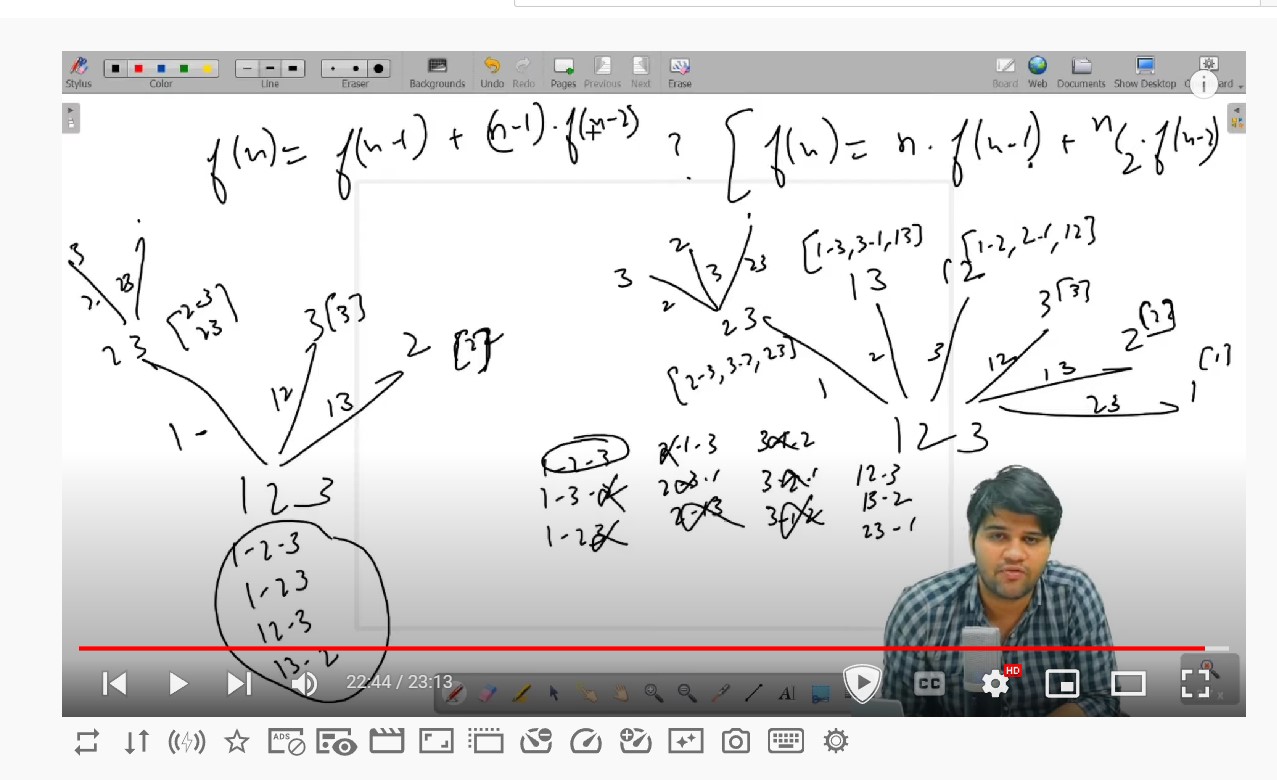 Stylus Color Line Eraser Backgrounds Undo Redo Pages Previous Next Erase Board Web Documents Show Desktop
f(n) = f(n-1) + (n-1) · f(n-2) ? [ f(n) = n · f(n-1) + nC2 · f(n-2)
3
23
[2-3
23]
23
3[3]
2
12
13
1 -
1 2 3
1-2-3
1-23
12-3
13-2
3
2
2
3
23
23
[2-3, 3-2, 23]
[1-3, 3-1, 13]
13
[1-2, 2-1, 12]
12
3[3]
2[2]
[1]
1
1
2
3
12
13
23
1 2 3
1-2-3
1-3-2
1-23
2-1-3
2-3-1
2-13
3-1-2
3-2-1
3-12
12-3
13-2
23-1
22:44 / 23:13
CC
HD
ADS